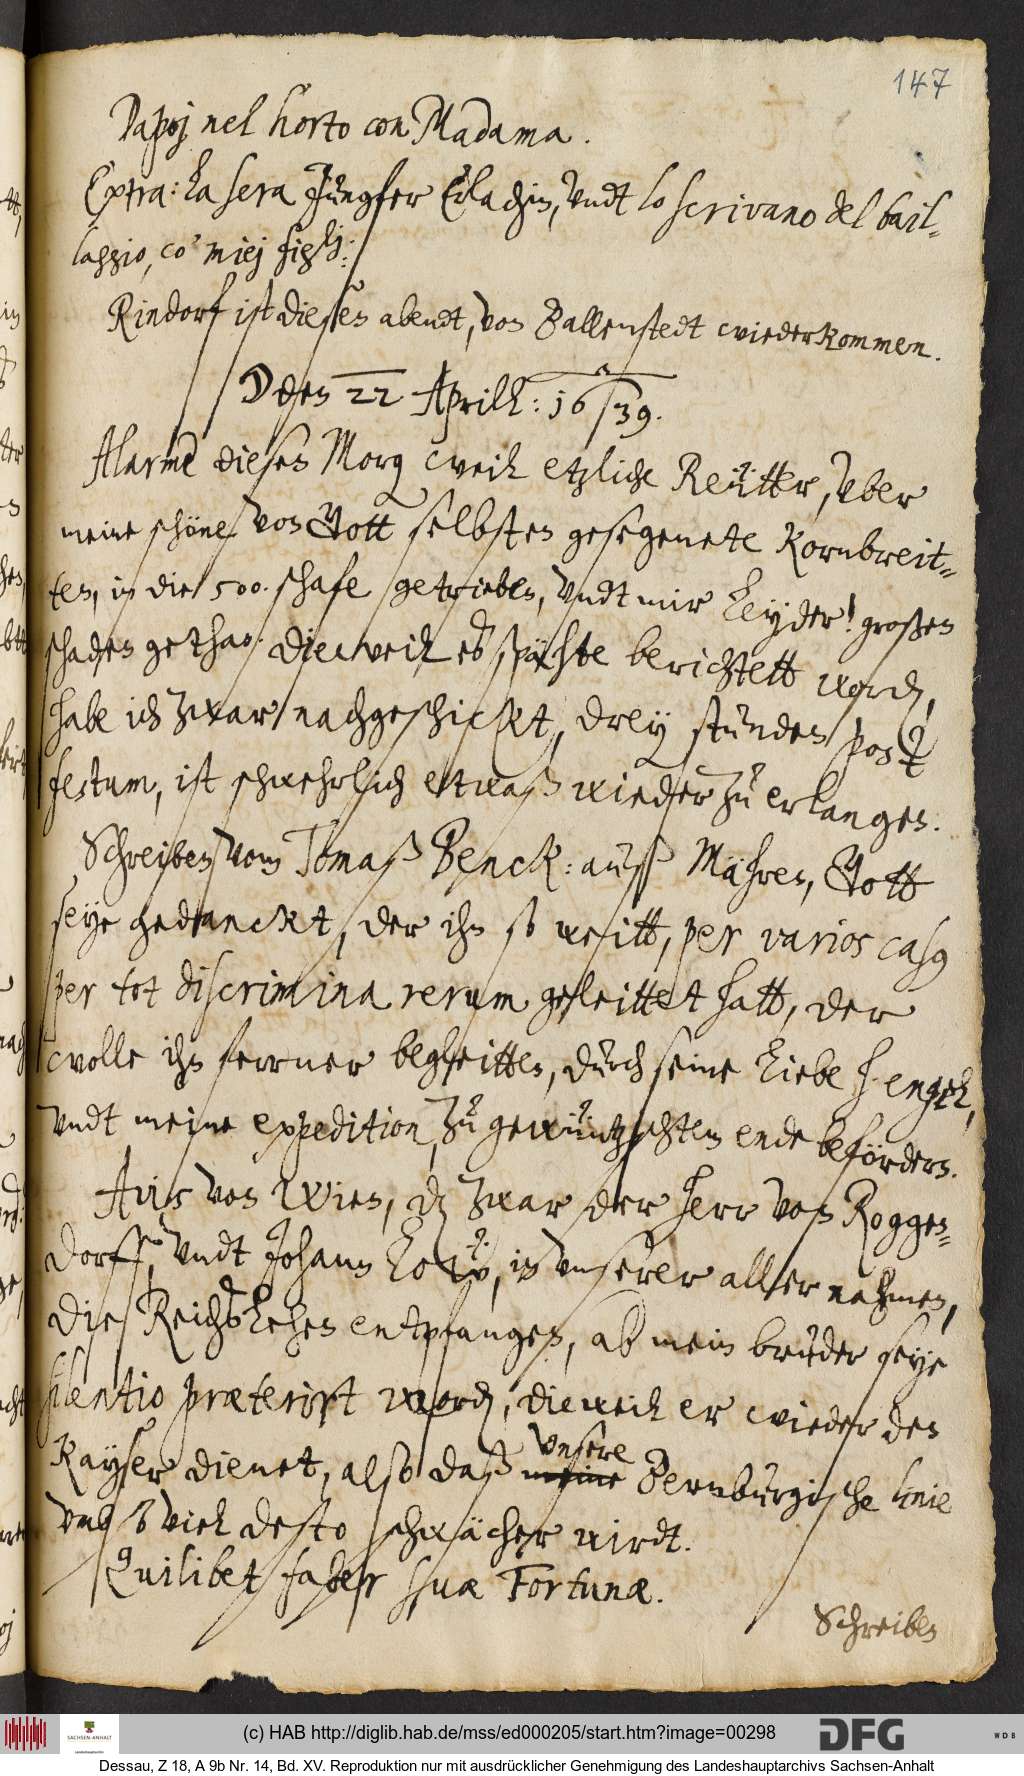 147
Dapoj nel horto con Madama.
Extra: La sera Jungfer Erlachin, undt lo scrivano del bail-
laggio, co' miej figlij.
Rindorf ist dieses abendt, von Ballenstedt wiederkommen.
☽ den 22 Aprill: 1639.
Alarme dieses Morg weil etzliche Reütter, vber
meine schöne von Gott selbsten gesegenete Kornbreit-
ten, in die 500. schafe getrieben, vndt mir Leyder! großen
schaden gethan. Dieweil es spähte berichtett word,
habe ich zwar nachgeschickt, drey stunden post
festum, ist schwehrlich etwaß wieder zu erlangen.
Schreiben vom Tomaß Benck: auß Mähren, Gott
seye gedanckt, der ihn so weitt, per varios casus
per tot discrimina rerum gefleittet hatt, der
wolle ihn ferrner begleitten, durch seine Liebe h. engel,
vndt meine expedition, zu gewüntzschtem ende befördern.
Avis von Wien, dz zwar der Herr von Roggen-
dorff, vndt Johann Löw, in vnserer aller nahmen,
die ReichsLehen entpfangen, ab mein bruder seye
silentio præterirt word, dieweil er wieder den
Kayser dienet, also daß vnsere meine Bernburgische linie
vmb so viel desto schwächer wirdt.
Quilibet faber suæ Fortunæ.
Schreiben
(c) HAB http://diglib.hab.de/mss/ed000205/start.htm?image=00298
SACHSEN-ANHALT
DFG
WDB
Dessau, Z 18, A 9b Nr. 14, Bd. XV. Reproduktion nur mit ausdrücklicher Genehmigung des Landeshauptarchivs Sachsen-Anhalt